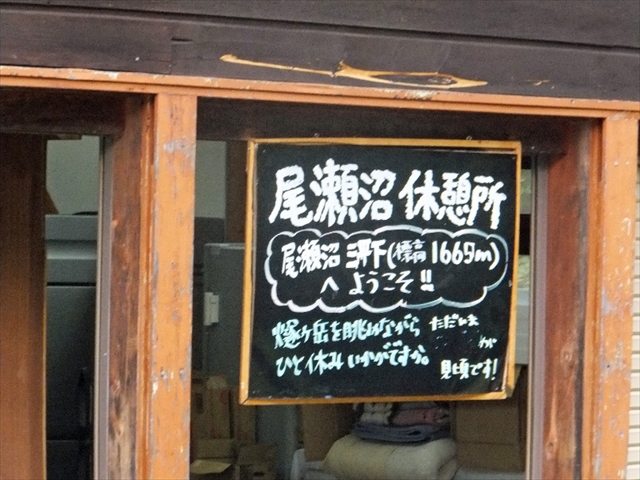 尾瀬沼 休憩所
尾瀬沼 三平下(標高1665m)
へ ようこそ!!
燧ヶ岳を眺めながら
ひと休みいかがですか。
ただいま
が
見頃です!